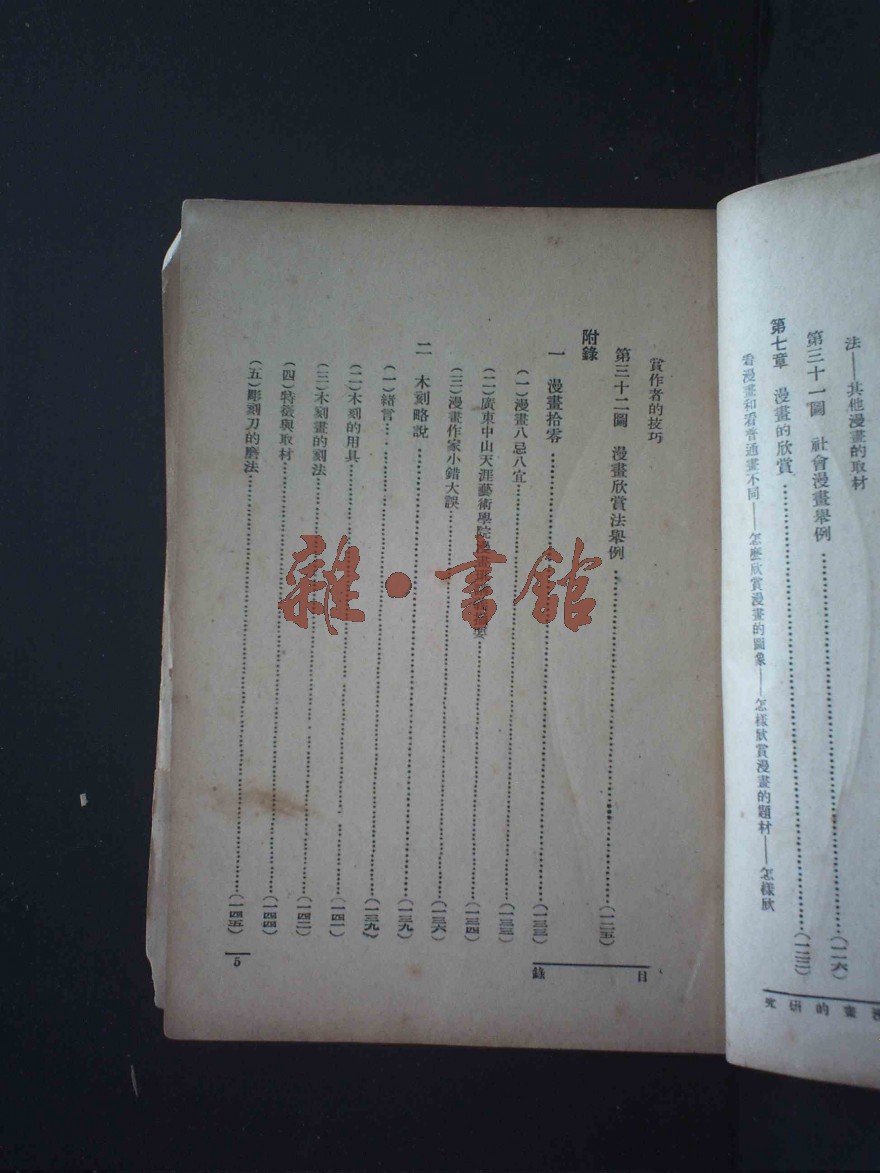 法——其他漫畫的取材
第三十一圖 社會漫畫舉例……(一一六)
第七章 漫畫的欣賞……(一二三)
看漫畫和看普通畫不同——怎麽欣賞漫畫的圖象——怎樣欣賞漫畫的題材——怎樣欣
漫畫的研究
賞作者的技巧
第三十二圖 漫畫欣賞法舉例……(一二五)
附錄
一 漫畫拾零……(一三三)
(一)漫畫八忌八宜……(一三三)
(二)廣東中山天涯藝術學院……(一三四)
(三)漫畫作家小錯大誤……(一三六)
二 木刻略說……(一三九)
(一)緒言……(一三九)
(二)木刻的用具……(一四一)
(三)木刻畫的刻法……(一四二)
(四)特徵與取材……(一四四)
(五)彫刻刀的磨法……(一四五)
目錄
5
雜·書館